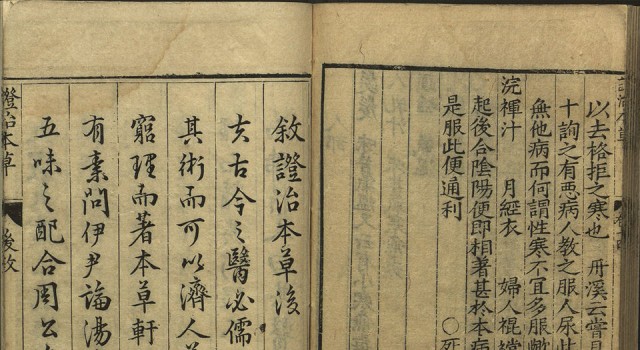 以去格拒之寒也　丹溪云嘗見
十詢之有惡病人教之服人尿此
無他病而何謂性寒不宜多服歟
浣褌汁　月經衣　婦人裩襠
起後合陰陽便即相著甚於本病
是服此便通利　〇死
敘證治本草後
夫古今之醫必儒
其術而可以濟人
窮理而著本草軒
有素問伊尹論湯
五味之配合周公
證治本草
後敘